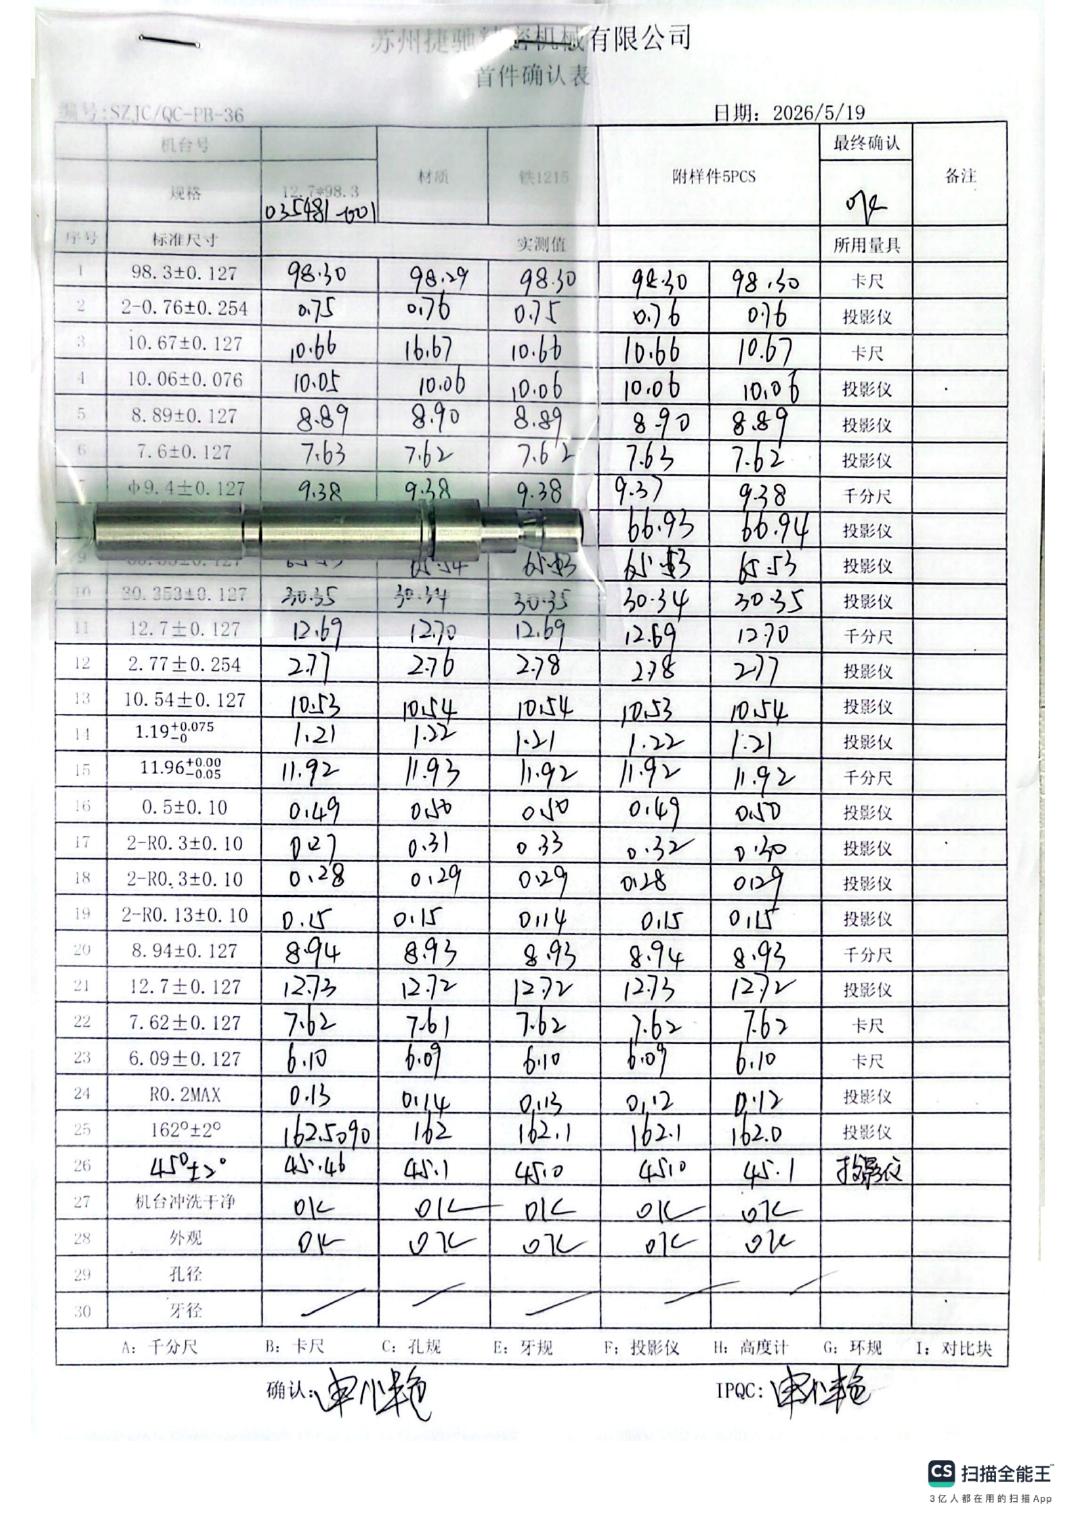 苏州捷驰精密机械有限公司
首件确认表
编号:SZJC/QC-PB-36 日期: 2026/5/19
机台号 材质 铁1215 附样件5PCS 最终确认 备注
规格 12.7*98.3 035481-001 OK
序号 标准尺寸 实测值 所用量具
1 98.3±0.127 98.30 98.29 98.30 98.30 98.30 卡尺
2 2-0.76±0.254 0.75 0.76 0.75 0.76 0.76 投影仪
3 10.67±0.127 10.66 16.67 10.66 10.66 10.67 卡尺
4 10.06±0.076 10.05 10.06 10.06 10.06 10.06 投影仪
5 8.89±0.127 8.89 8.90 8.89 8.90 8.89 投影仪
6 7.6±0.127 7.63 7.62 7.62 7.63 7.62 投影仪
7 φ9.4±0.127 9.38 9.38 9.38 9.37 9.38 千分尺
66.93 66.94 投影仪
9 65.54 65.53 65.53 65.53 投影仪
10 30.353±0.127 30.35 30.34 30.35 30.34 30.35 投影仪
11 12.7±0.127 12.69 12.70 12.69 12.69 12.70 千分尺
12 2.77±0.254 2.77 2.76 2.78 2.78 2.77 投影仪
13 10.54±0.127 10.53 10.54 10.54 10.53 10.54 投影仪
14 1.19+0.075 -0 1.21 1.22 1.21 1.22 1.21 投影仪
15 11.96+0.00 -0.05 11.92 11.93 11.92 11.92 11.92 千分尺
16 0.5±0.10 0.49 0.50 0.50 0.49 0.50 投影仪
17 2-R0.3±0.10 0.27 0.31 0.33 0.32 0.30 投影仪
18 2-R0.3±0.10 0.28 0.29 0.29 0.28 0.29 投影仪
19 2-R0.13±0.10 0.15 0.15 0.14 0.15 0.15 投影仪
20 8.94±0.127 8.94 8.93 8.93 8.94 8.93 千分尺
21 12.7±0.127 12.73 12.72 12.72 12.73 12.72 投影仪
22 7.62±0.127 7.62 7.61 7.62 7.62 7.62 卡尺
23 6.09±0.127 6.10 6.09 6.10 6.09 6.10 卡尺
24 R0.2MAX 0.13 0.14 0.13 0.12 0.12 投影仪
25 162°±2° 162.5090 162 162.1 162.1 162.0 投影仪
26 45°±2° 45.46 45.1 45.0 45.0 45.1 投影仪
27 机台冲洗干净 OK OK OK OK OK
28 外观 OK OK OK OK OK
29 孔径
30 牙径
A: 千分尺 B: 卡尺 C: 孔规 E: 牙规 F: 投影仪 H: 高度计 G: 环规 I: 对比块
确认: 申小艳 IPQC: 申小艳
CS 扫描全能王
3亿人都在用的扫描App